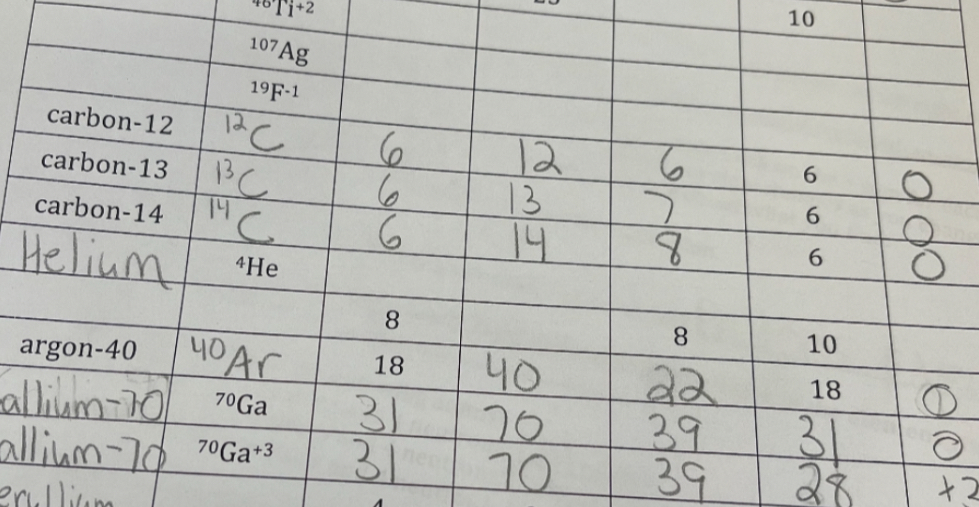 46Ti+2 10
107Ag
19F-1
carbon-12 12C 6 12 6 6 0
carbon-13 13C 6 13 7 6 0
carbon-14 14C 6 14 8 6 0
Helium 4He
8 8 10
argon-40 40Ar 18 40 22 18 0
allium-70 70Ga 31 70 39 31 0
allium-70 70Ga+3 31 70 39 28